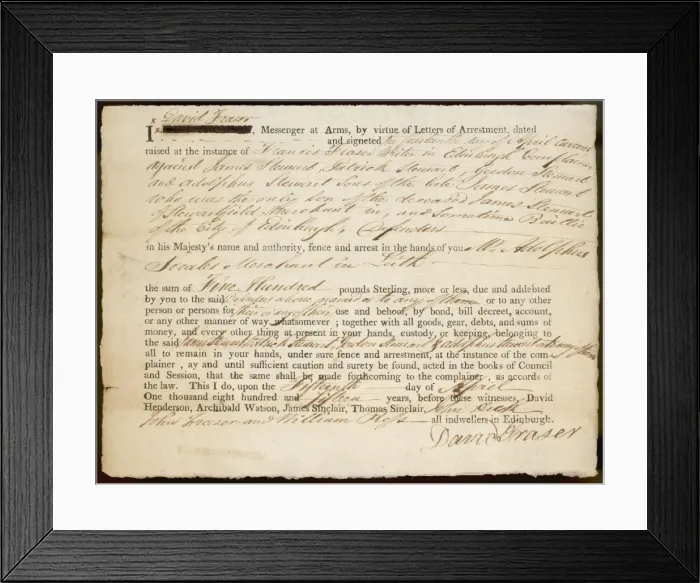 David Fraser
I, Messenger at Arms, by virtue of Letters of Arrestment, dated
and signeted the day of April Current
raised at the instance of Francis Fraser Writer in Edinburgh Complainer
against James Stewart, Patrick Stewart, Gordon Stewart
and Adolphus Stewart Sons of the late James Stewart
who was the only son of the deceased James Stewart
of Stewartfield Merchant in, and Sometime Baillie
of the City of Edinburgh, Defenders
in his Majesty's name and authority, fence and arrest in the hands of you Mr Adolphus
Merchant in Leith
the sum of Five Hundred pounds Sterling, more or less, due and addebted
by you to the said Defenders above named or to any of them or to any other
person or persons for their or any of their use and behoof, by bond, bill decreet, account,
or any other manner of way whatsomever ; together with all goods, gear, debts, and sums of
money, and every other thing at present in your hands, custody, or keeping, belonging to
the said James Stewart Patrick Stewart, Gordon Stewart & Adolphus Stewart or to any of them
all to remain in your hands, under sure fence and arrestment, at the instance of the com
plainer , ay and until sufficient caution and surety be found, acted in the books of Council
and Session, that the same shall be made forthcoming to the complainer , as accords of
the law. This I do, upon the Fifteenth day of April
One thousand eight hundred and fifteen years, before these witnesses, David
Henderson, Archibald Watson, James Sinclair, Thomas Sinclair, John
John Fraser and William Ross all indwellers in Edinburgh.
David Fraser